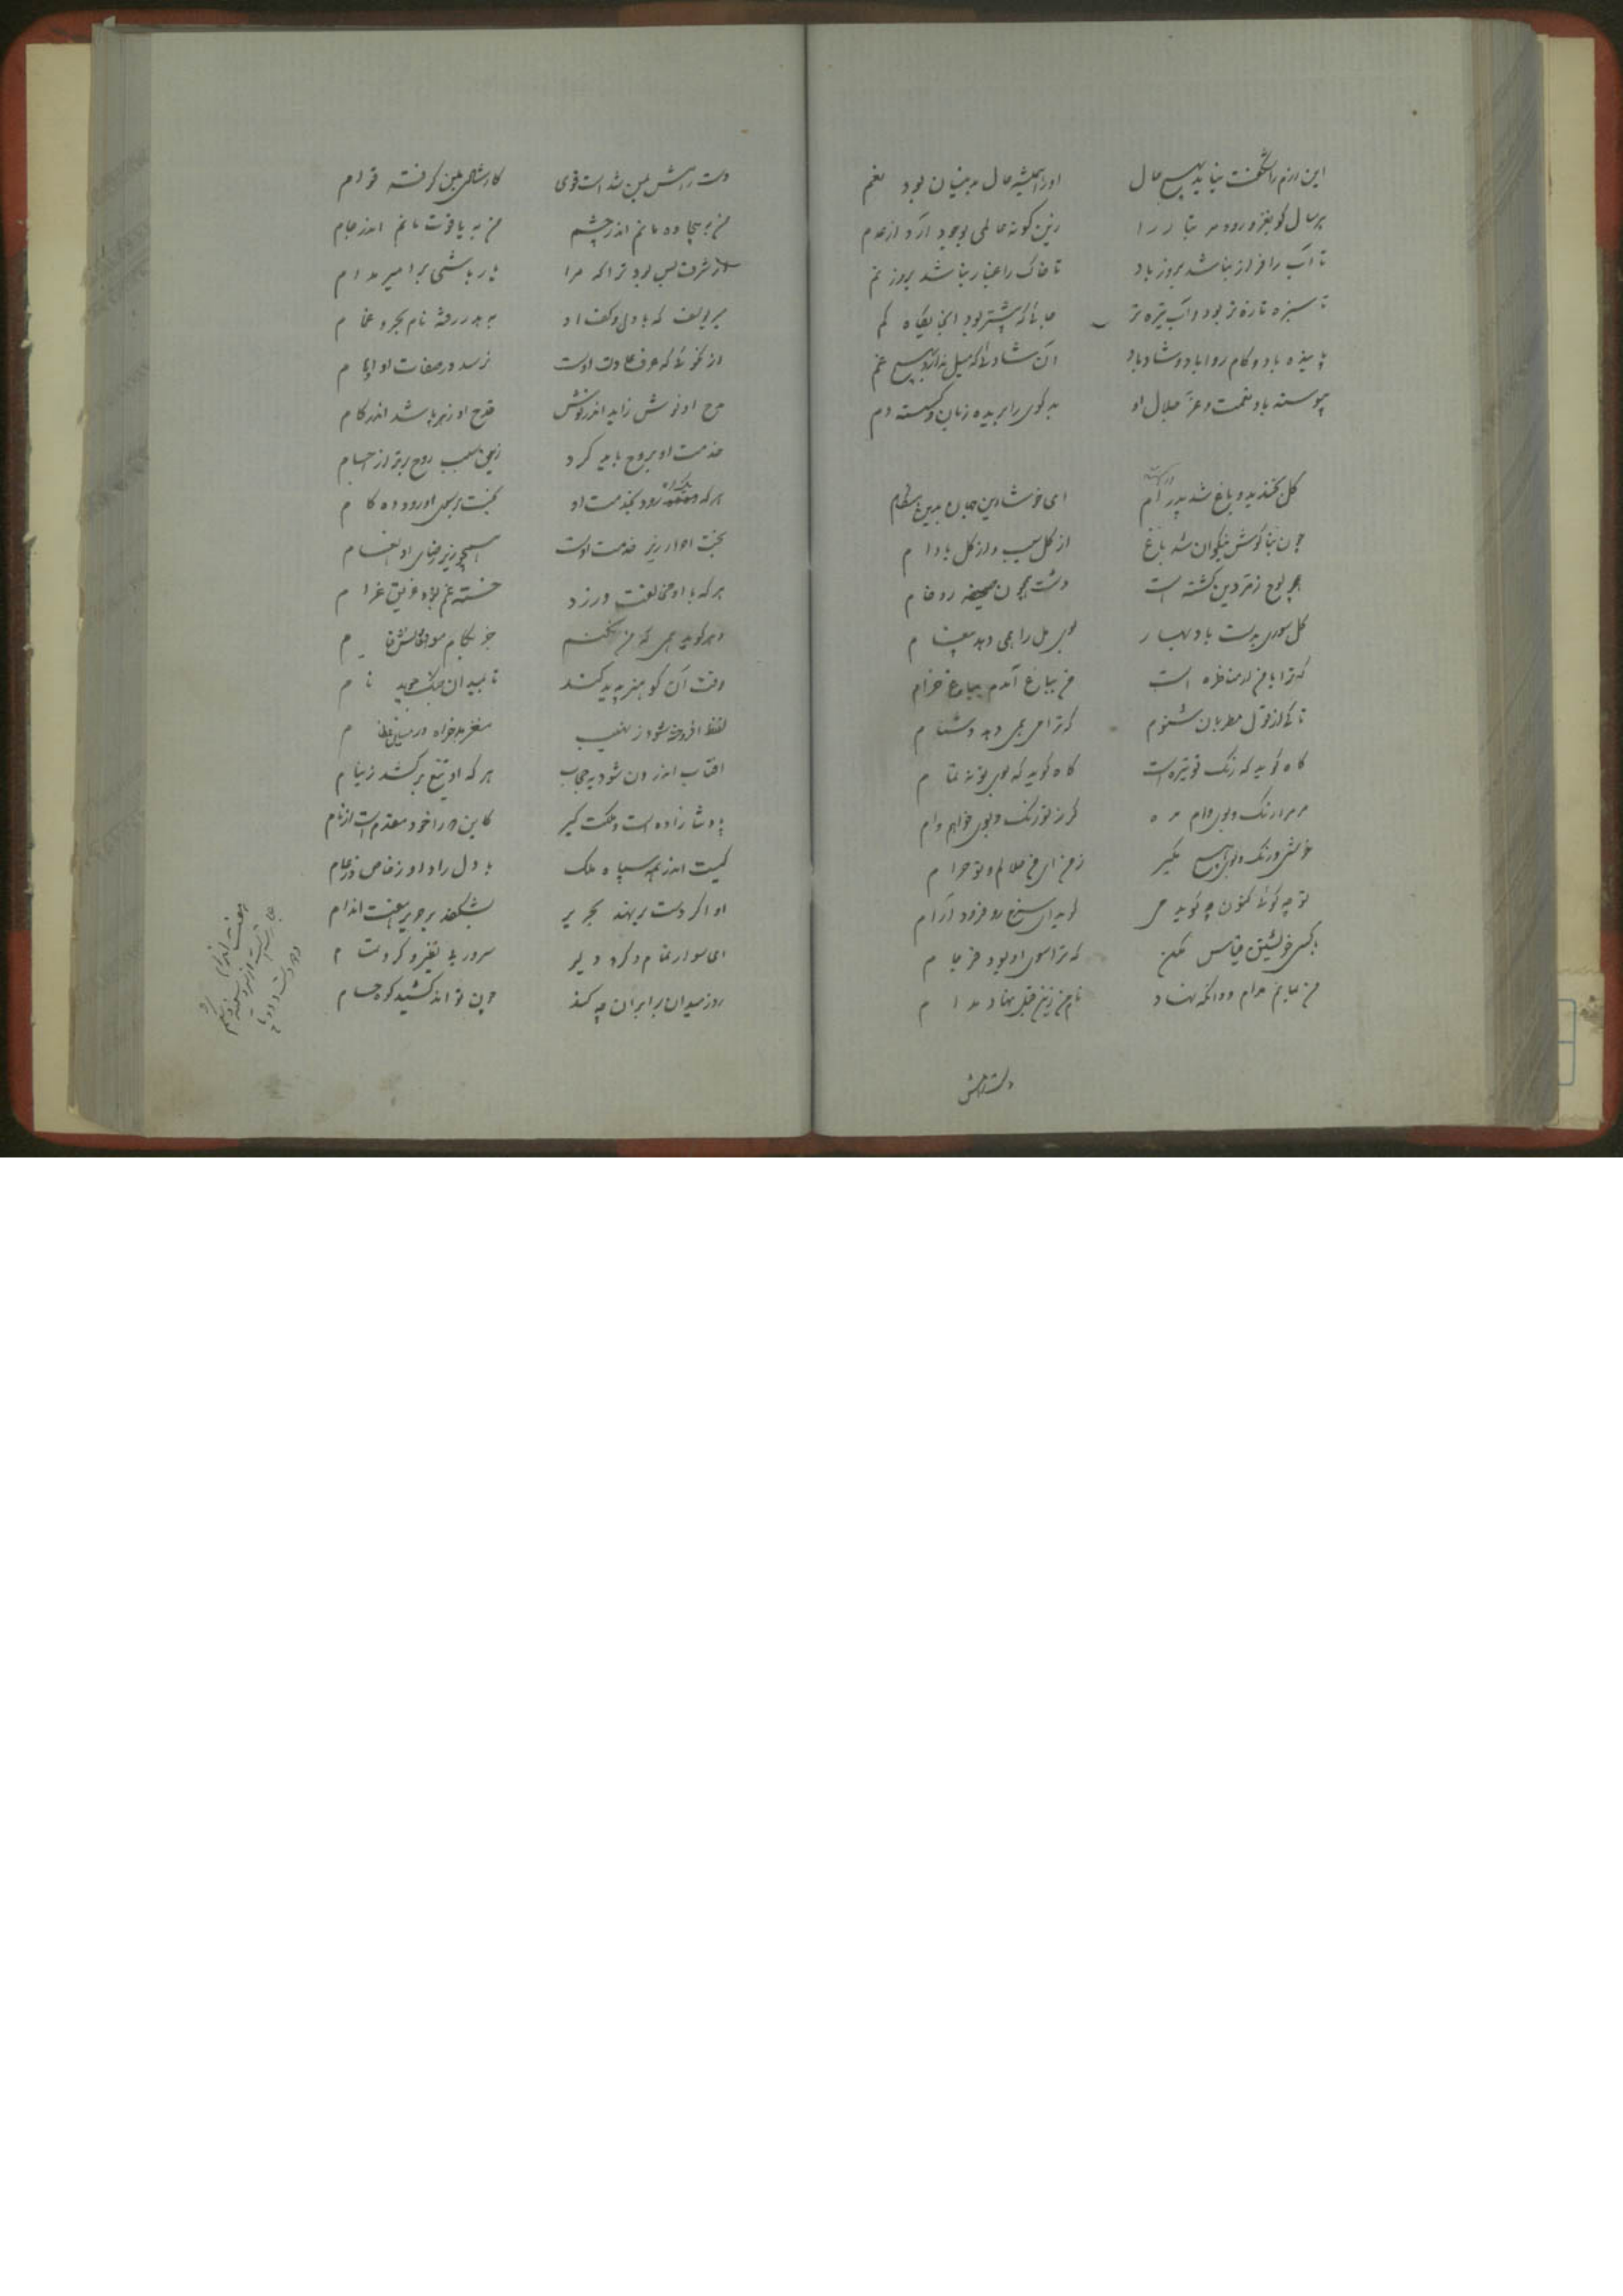 این رزم را شگفت نیاید بهیچ حال اورا همیشه حال بدینسان بود نعم
هرسال کو بغزو رود مر تبار را زین گونه عالمی بوجود آرد از عدم
تا آب را فراز نباشد بروز باد تا خاک را غبار نباشد بروز نم
تا سبزه تازه تر بود و آب تیره تر جائی که بیشتر بود آنجایگاه کم
پاینده باد و کام روا باد و شاد باد آن شاد که میل ندارد بهیچ غم
پیوسته باد نعمت و عز و جلال او بدگوی را بریده زبان و گسسته دم
گل بخندید و باغ شد پدرام ای خوشا این جهان بدین هنگام
چون بناگوش نیکوان شد باغ از گل سیب و از گل بادام
همچو لوح زمردین گشته است دشت همچون صحیفه رخام
گل سوری بدست باد بهار سوی مل را همی دهد پیغام
که ترا با من ار مناظره است من بباغ آمدم بباغ خرام
تا کی از قول مطربان شنوم که ترا می همی دهد دشنام
گاه گوید که رنگ تو تیره است گاه گوید که بوی تو نه تمام
مر مرا رنگ و بوی وام مده گر ز تو رنگ و بوی خواهم وام
خویش و رنگ و بوی هیچ مگیر نه من ای می حلالم و تو حرام
تو چه گوئی کنون چه گوید می گوید ای سرخ رو فرود آرام
با کسی خویشتن قیاس مکن که ترا سوی او بود فرجام
من بمانم مدام و آنکه نهاد نام من زین قبل نهاد مدام
دست رایش
دست رایش بدین شداست قوی کار شاهی بدین گرفته قوام
من به بیجاده مانم اندر چشم من به یاقوت مانم اندر جام
از شرف بس بود ترا که مرا باز باشی بر امیر مدام
میر یوسف که با دل و کف او برود رفته نام بحر و غمام
از نکوئی که عرف و عادت اوست نرسد در صفات او اوهام
مدح او نوش زاید اندر گوش قدح او زهر باشد اندر کام
خدمت او بروح باید کرد زین سبب روح برتر از اجسام
هرکه یکبار رود بخدمت او بخت بر پی او رود ده گام
بخت احرار زیر خدمت اوست همچو زیر رضای او انعام
هرکه با او مخالفت ورزد خسته غم بود غریق غرام
دهر گوید همی که من نکنم جز بکام موافقانش قیام
وقت آن کو هنر پدید کند تا بمیدان جنگ جوید نام
لفظ افروخته شود ز نهیب مغز بدخواه در میان عظام
آفتاب اندرون شود به حجاب هرگه او تیغ برکشد زنیام
پادشا زاده است و ملکت گیر کاین ورا خود مقدم است از نام
کیست اندر همه سپاه ملک با دل راد او ز خاص و ز عام
او اگر دست بر نهد بهژبر بشکند بر هژبر هفت اندام
ای سوار تمام و گرد دلیر سرور پر تغیر و کرده تمام
روز میدان برابران چه کند چون تواند کشید کوه حسام